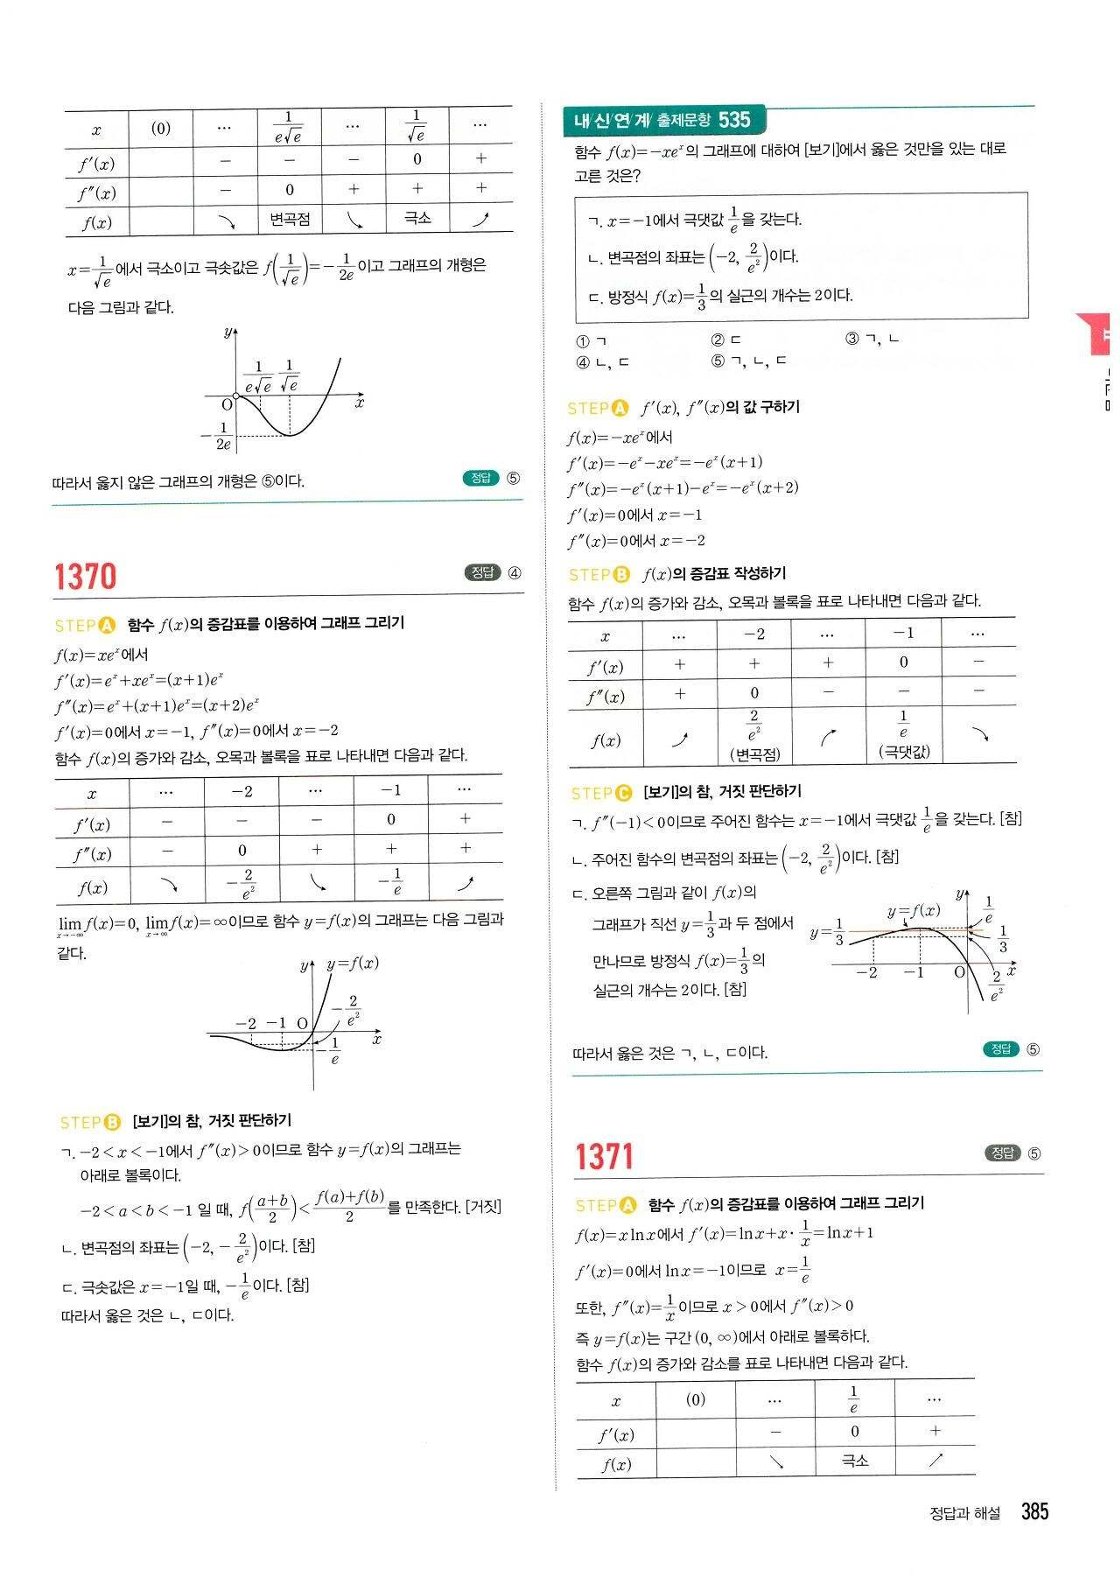 x (0) … 1/(e√e) … 1/√e …
f′(x) − − − 0 +
f″(x) − 0 + + +
f(x) 변곡점 극소
x=1/√e에서 극소이고 극솟값은 f(1/√e)=−1/2e이고 그래프의 개형은
다음 그림과 같다.
y
1/(e√e) 1/√e
O x
−1/2e
따라서 옳지 않은 그래프의 개형은 ⑤이다. 정답 ⑤
1370 정답 ④
STEP A 함수 f(x)의 증감표를 이용하여 그래프 그리기
f(x)=xeˣ에서
f′(x)=eˣ+xeˣ=(x+1)eˣ
f″(x)=eˣ+(x+1)eˣ=(x+2)eˣ
f′(x)=0에서 x=−1, f″(x)=0에서 x=−2
함수 f(x)의 증가와 감소, 오목과 볼록을 표로 나타내면 다음과 같다.
x … −2 … −1 …
f′(x) − − − 0 +
f″(x) − 0 + + +
f(x) −2/e² −1/e
lim x→−∞ f(x)=0, lim x→∞ f(x)=∞이므로 함수 y=f(x)의 그래프는 다음 그림과
같다.
y y=f(x)
−2 −1 O −2/e²
x
−1/e
STEP B [보기]의 참, 거짓 판단하기
ㄱ. −2<x<−1에서 f″(x)>0이므로 함수 y=f(x)의 그래프는
아래로 볼록이다.
−2<a<b<−1 일 때, f((a+b)/2)<(f(a)+f(b))/2를 만족한다. [거짓]
ㄴ. 변곡점의 좌표는 (−2, −2/e²)이다. [참]
ㄷ. 극솟값은 x=−1일 때, −1/e이다. [참]
따라서 옳은 것은 ㄴ, ㄷ이다.
내/신/연/계/ 출제문항 535
함수 f(x)=−xeˣ의 그래프에 대하여 [보기]에서 옳은 것만을 있는 대로
고른 것은?
ㄱ. x=−1에서 극댓값 1/e을 갖는다.
ㄴ. 변곡점의 좌표는 (−2, 2/e²)이다.
ㄷ. 방정식 f(x)=1/3의 실근의 개수는 2이다.
① ㄱ ② ㄷ ③ ㄱ, ㄴ
④ ㄴ, ㄷ ⑤ ㄱ, ㄴ, ㄷ
STEP A f′(x), f″(x)의 값 구하기
f(x)=−xeˣ에서
f′(x)=−eˣ−xeˣ=−eˣ(x+1)
f″(x)=−eˣ(x+1)−eˣ=−eˣ(x+2)
f′(x)=0에서 x=−1
f″(x)=0에서 x=−2
STEP B f(x)의 증감표 작성하기
함수 f(x)의 증가와 감소, 오목과 볼록을 표로 나타내면 다음과 같다.
x … −2 … −1 …
f′(x) + + + 0 −
f″(x) + 0 − − −
f(x) 2/e² (변곡점) 1/e (극댓값)
STEP C [보기]의 참, 거짓 판단하기
ㄱ. f″(−1)<0이므로 주어진 함수는 x=−1에서 극댓값 1/e을 갖는다. [참]
ㄴ. 주어진 함수의 변곡점의 좌표는 (−2, 2/e²)이다. [참]
ㄷ. 오른쪽 그림과 같이 f(x)의
그래프가 직선 y=1/3과 두 점에서
만나므로 방정식 f(x)=1/3의
실근의 개수는 2이다. [참]
y
y=f(x) 1/e
y=1/3 1/3
−2 −1 O 2/e² x
따라서 옳은 것은 ㄱ, ㄴ, ㄷ이다. 정답 ⑤
1371 정답 ⑤
STEP A 함수 f(x)의 증감표를 이용하여 그래프 그리기
f(x)=x ln x에서 f′(x)=ln x+x·1/x=ln x+1
f′(x)=0에서 ln x=−1이므로 x=1/e
또한, f″(x)=1/x이므로 x>0에서 f″(x)>0
즉 y=f(x)는 구간 (0, ∞)에서 아래로 볼록하다.
함수 f(x)의 증가와 감소를 표로 나타내면 다음과 같다.
x (0) … 1/e …
f′(x) − 0 +
f(x) ↘ 극소 ↗
정답과 해설 385